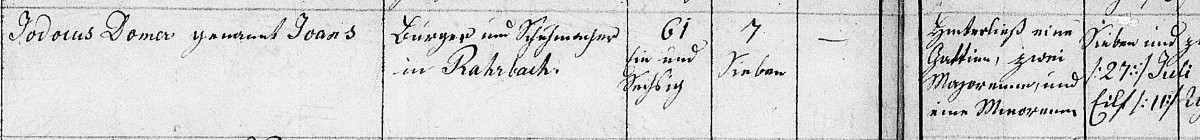 Jodocus Domer genannt Joans
Bürger und Schuhmacher
in Rahrbach.
61
Ein und
Sechsig
7
Sieben
—
Hinterließ eine
Gattinn, zwei
Majorenne, und
eine Minorenne
Sieben und
/:27:/ Juli
Eilf /:11:/